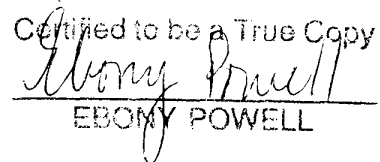 Certified to be a True Copy
Ebony Powell
EBONY POWELL